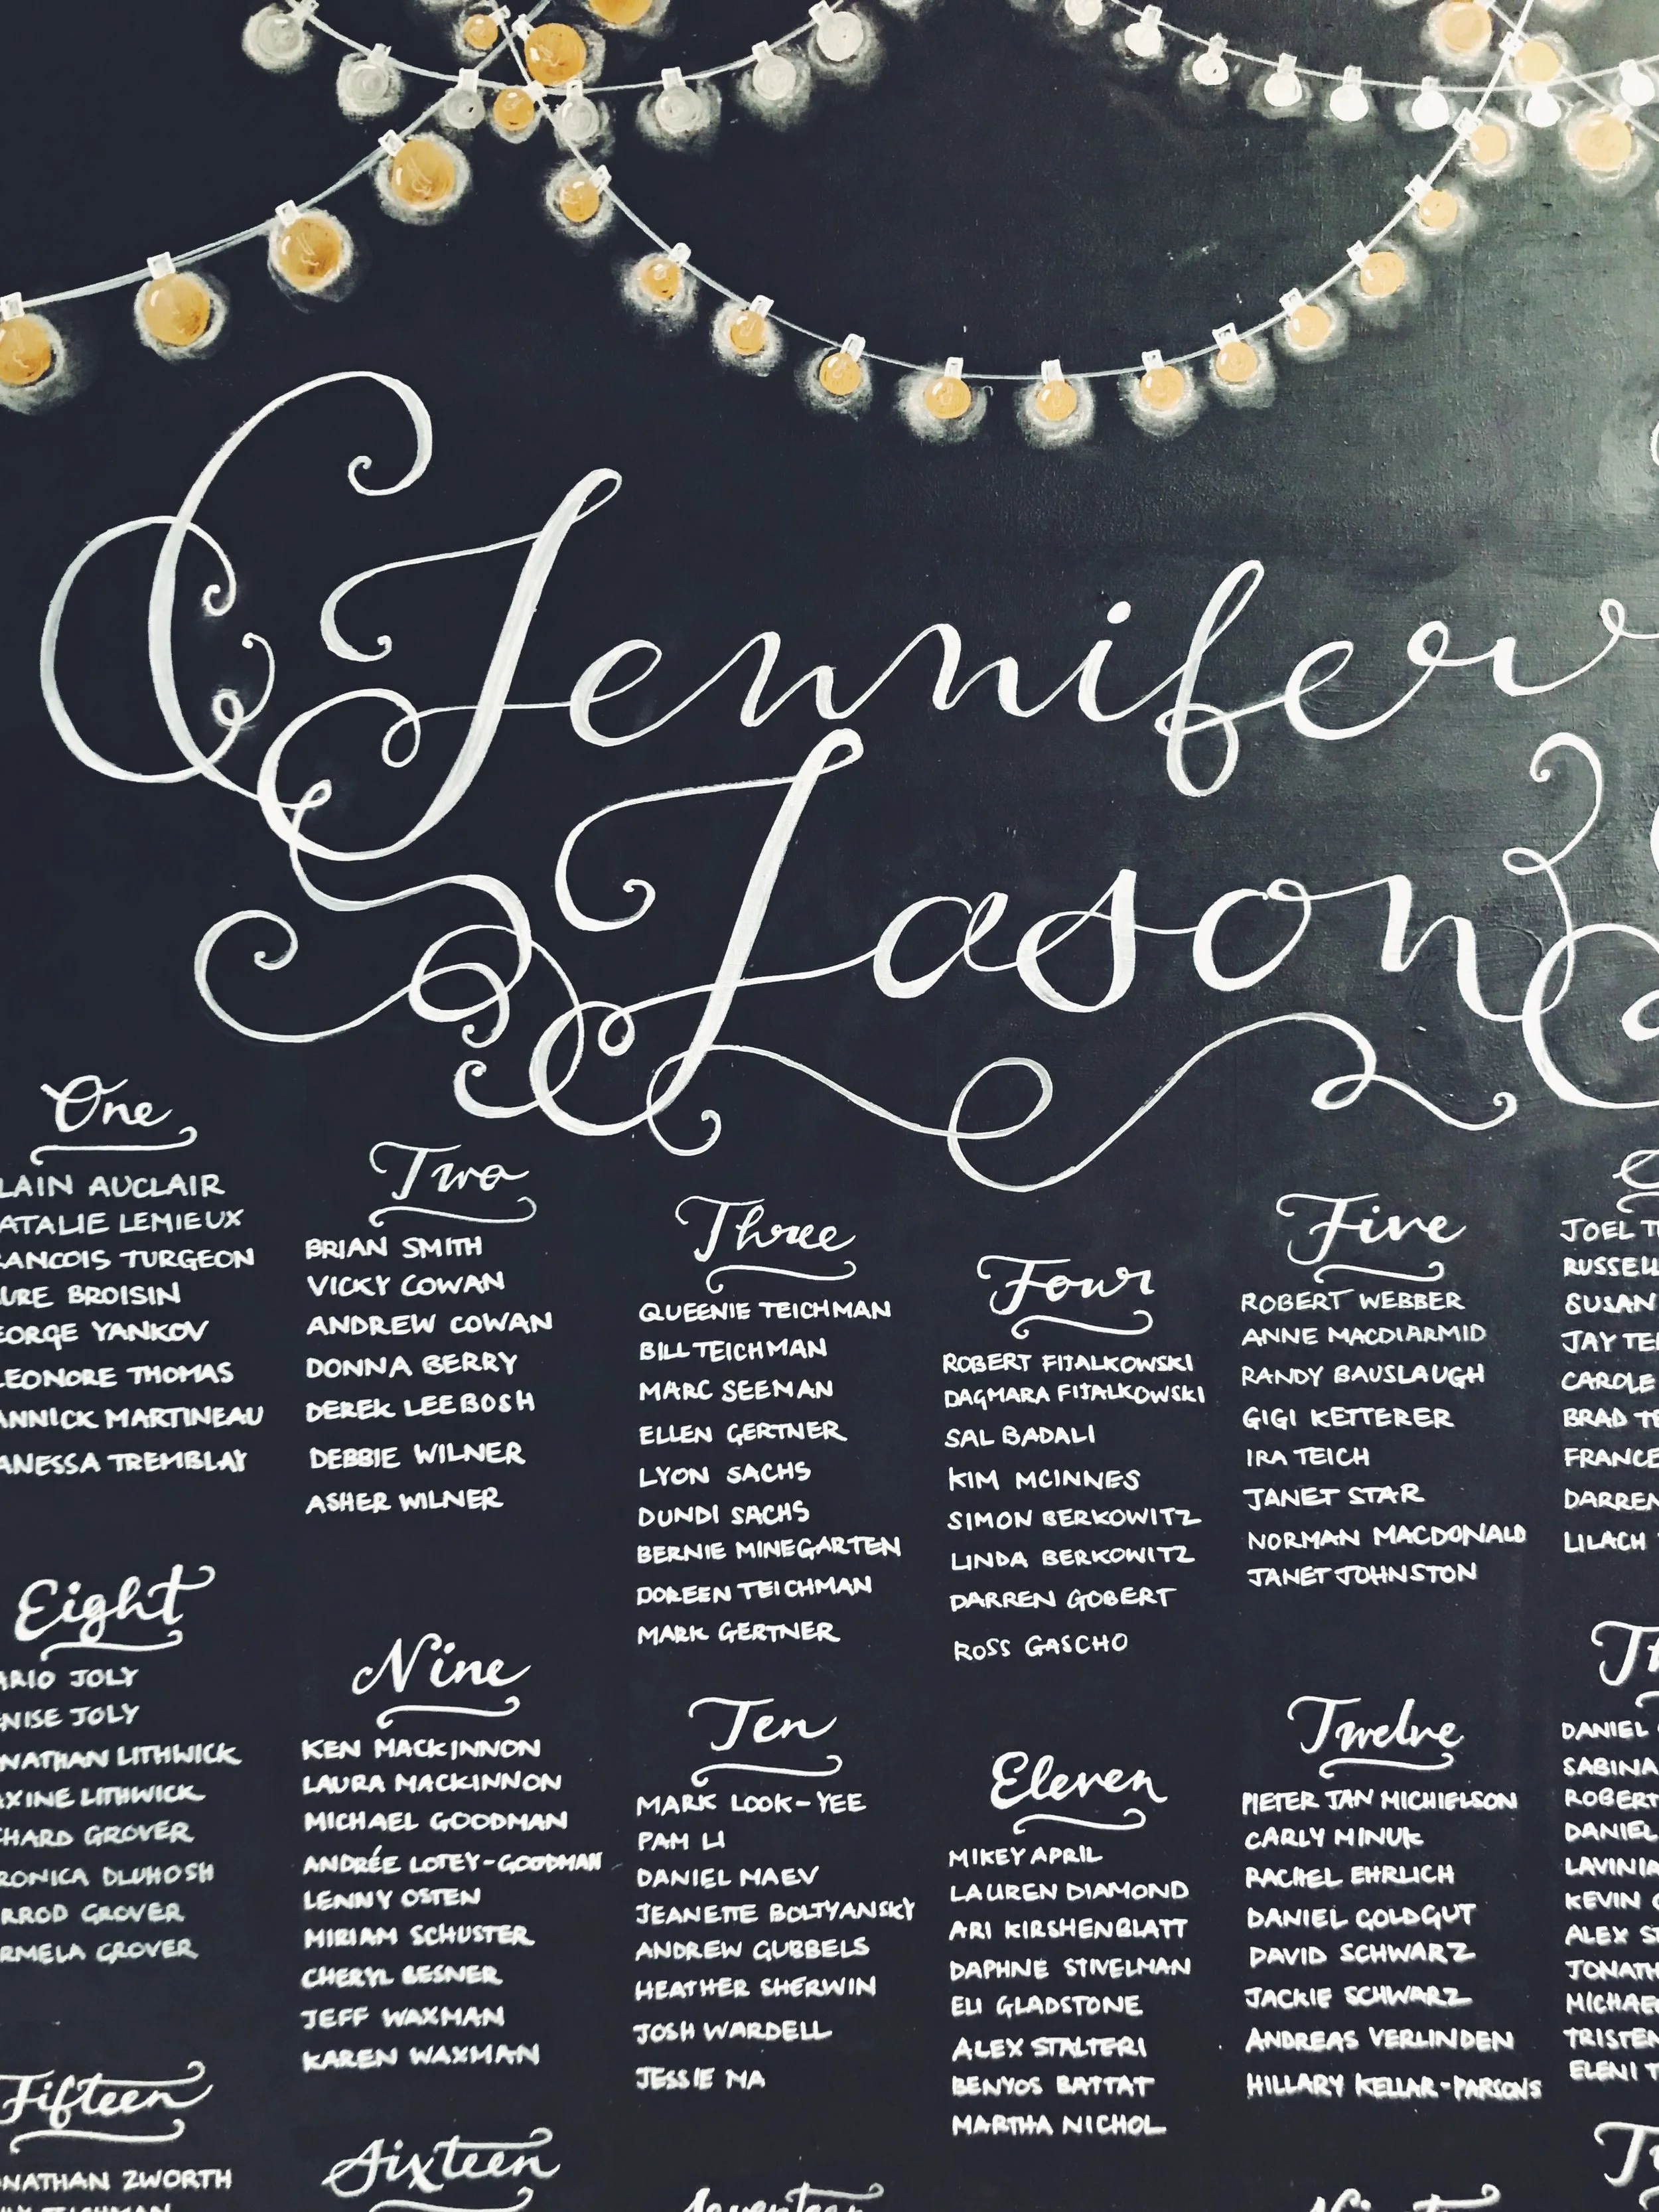 Jennifer
Jason
One
AUCLAIR
LEMIEUX
TURGEON
BROISIN
YANKOV
THOMAS
MARTINEAU
TREMBLAY
Two
BRIAN SMITH
VICKY COWAN
ANDREW COWAN
DONNA BERRY
DEREK LEEBOSH
DEBBIE WILNER
ASHER WILNER
Three
QUEENIE TEICHMAN
BILL TEICHMAN
MARC SEEMAN
ELLEN GERTNER
LYON SACHS
DUNDI SACHS
BERNIE MINEGARTEN
DOREEN TEICHMAN
MARK GERTNER
Four
ROBERT FIJALKOWSKI
DAGMARA FIJALKOWSKI
SAL BADALI
KIM MCINNES
SIMON BERKOWITZ
LINDA BERKOWITZ
DARREN GOBERT
ROSS GASCHO
Five
ROBERT WEBBER
ANNE MACDIARMID
RANDY BAUSLAUGH
GIGI KETTERER
IRA TEICH
JANET STAR
NORMAN MACDONALD
JANET JOHNSTON
JOEL
SUSAN
JAY
CAROLE
BRAD
DARREN
LILACH
Eight
JOLY
JOLY
LITHWICK
LITHWICK
GROVER
DLUHOSH
GROVER
GROVER
Nine
KEN MACKINNON
LAURA MACKINNON
MICHAEL GOODMAN
ANDRÉE LOTEY-GOODMAN
LENNY OSTEN
MIRIAM SCHUSTER
CHERYL BESNER
JEFF WAXMAN
KAREN WAXMAN
Ten
MARK LOOK-YEE
PAM LI
DANIEL MAEV
JEANETTE BOLTYANSKY
ANDREW GUBBELS
HEATHER SHERWIN
JOSH WARDELL
JESSIE MA
Eleven
MIKEY APRIL
LAUREN DIAMOND
ARI KIRSHENBLATT
DAPHNE STIVELMAN
ELI GLADSTONE
ALEX STALTERI
BENYOS BATTAT
MARTHA NICHOL
Twelve
PIETER JAN MICHIELSON
CARLY MINUK
RACHEL EHRLICH
DANIEL GOLDGUT
DAVID SCHWARZ
JACKIE SCHWARZ
ANDREAS VERLINDEN
HILLARY KELLAR-PARSONS
DANIEL
SABINA
ROBERT
DANIEL
LAVINIA
KEVIN
ALEX
ELENI
Fifteen
ZWORTH
Sixteen